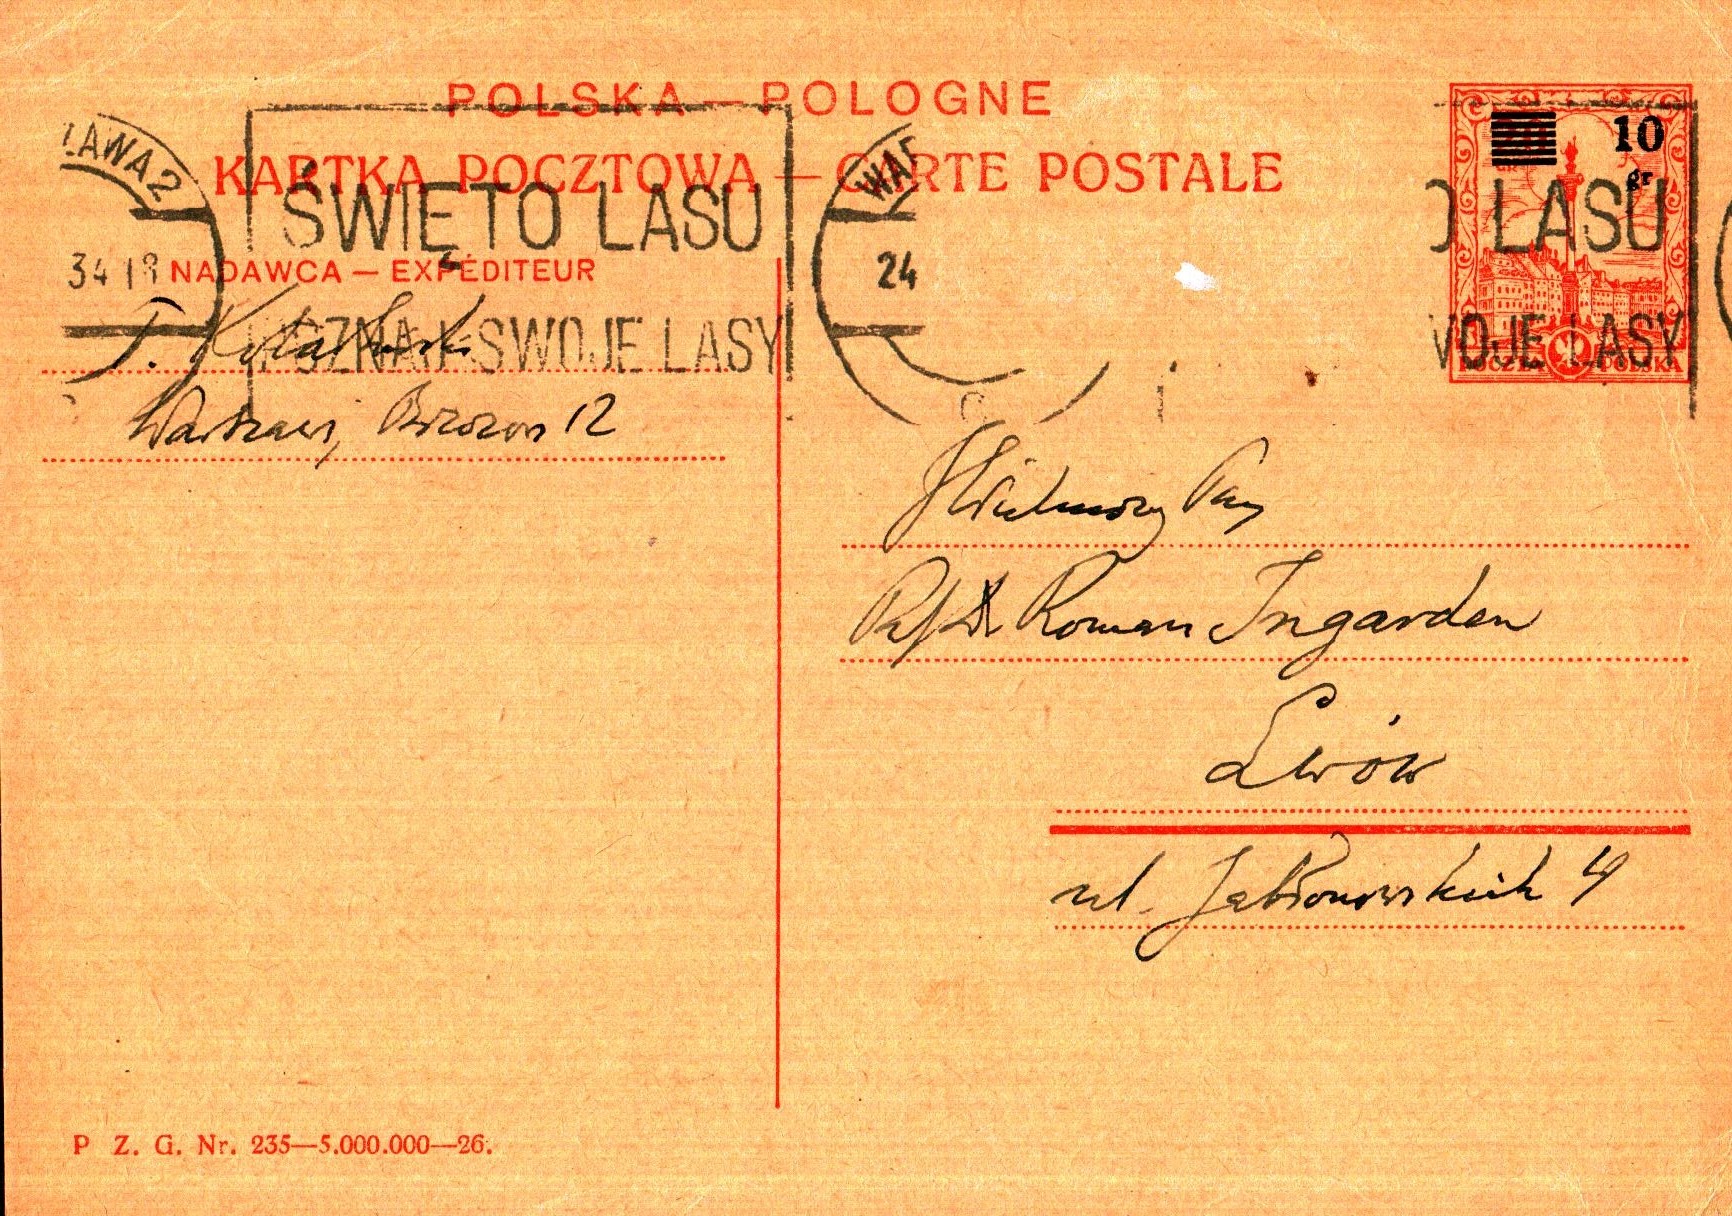 POLSKA — POLOGNE
KARTKA POCZTOWA — CARTE POSTALE
ŁAWA 2
34 18
ŚWIĘTO LASU
POZNAJ SWOJE LASY
WAR
24
O LASU
WOJE LASY
10
gr
POCZTA POLSKA
NADAWCA — EXPÉDITEUR
T. Kotarbiński
Warszawa, Brzozowa 12
JWielmożny Pan
Prof. Dr Roman Ingarden
Lwów
ul. Jabłonowskich 4
P Z. G. Nr. 235—5.000.000—26.